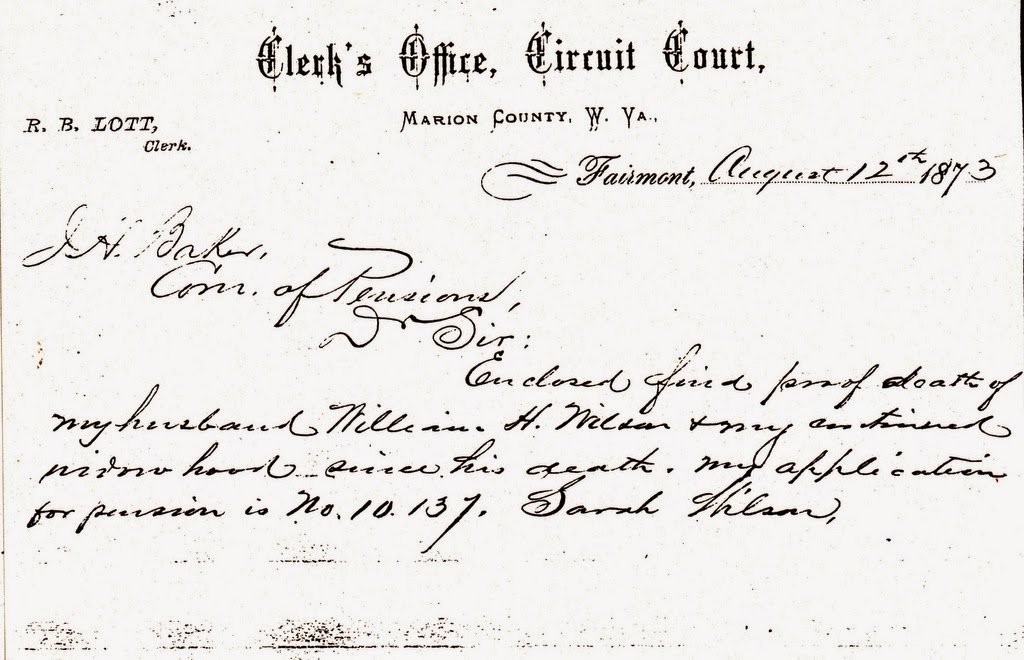 Clerk's Office, Circuit Court,
MARION COUNTY, W. VA.,
R. B. LOTT,
Clerk.
Fairmont, August 12th 1873
J. H. Baker,
Com. of Pensions,
Dr Sir:
Enclosed find proof death of
my husband William H. Wilson & my continued
widow hood since his death. My application
for pension is No. 10.137. Sarah Wilson,